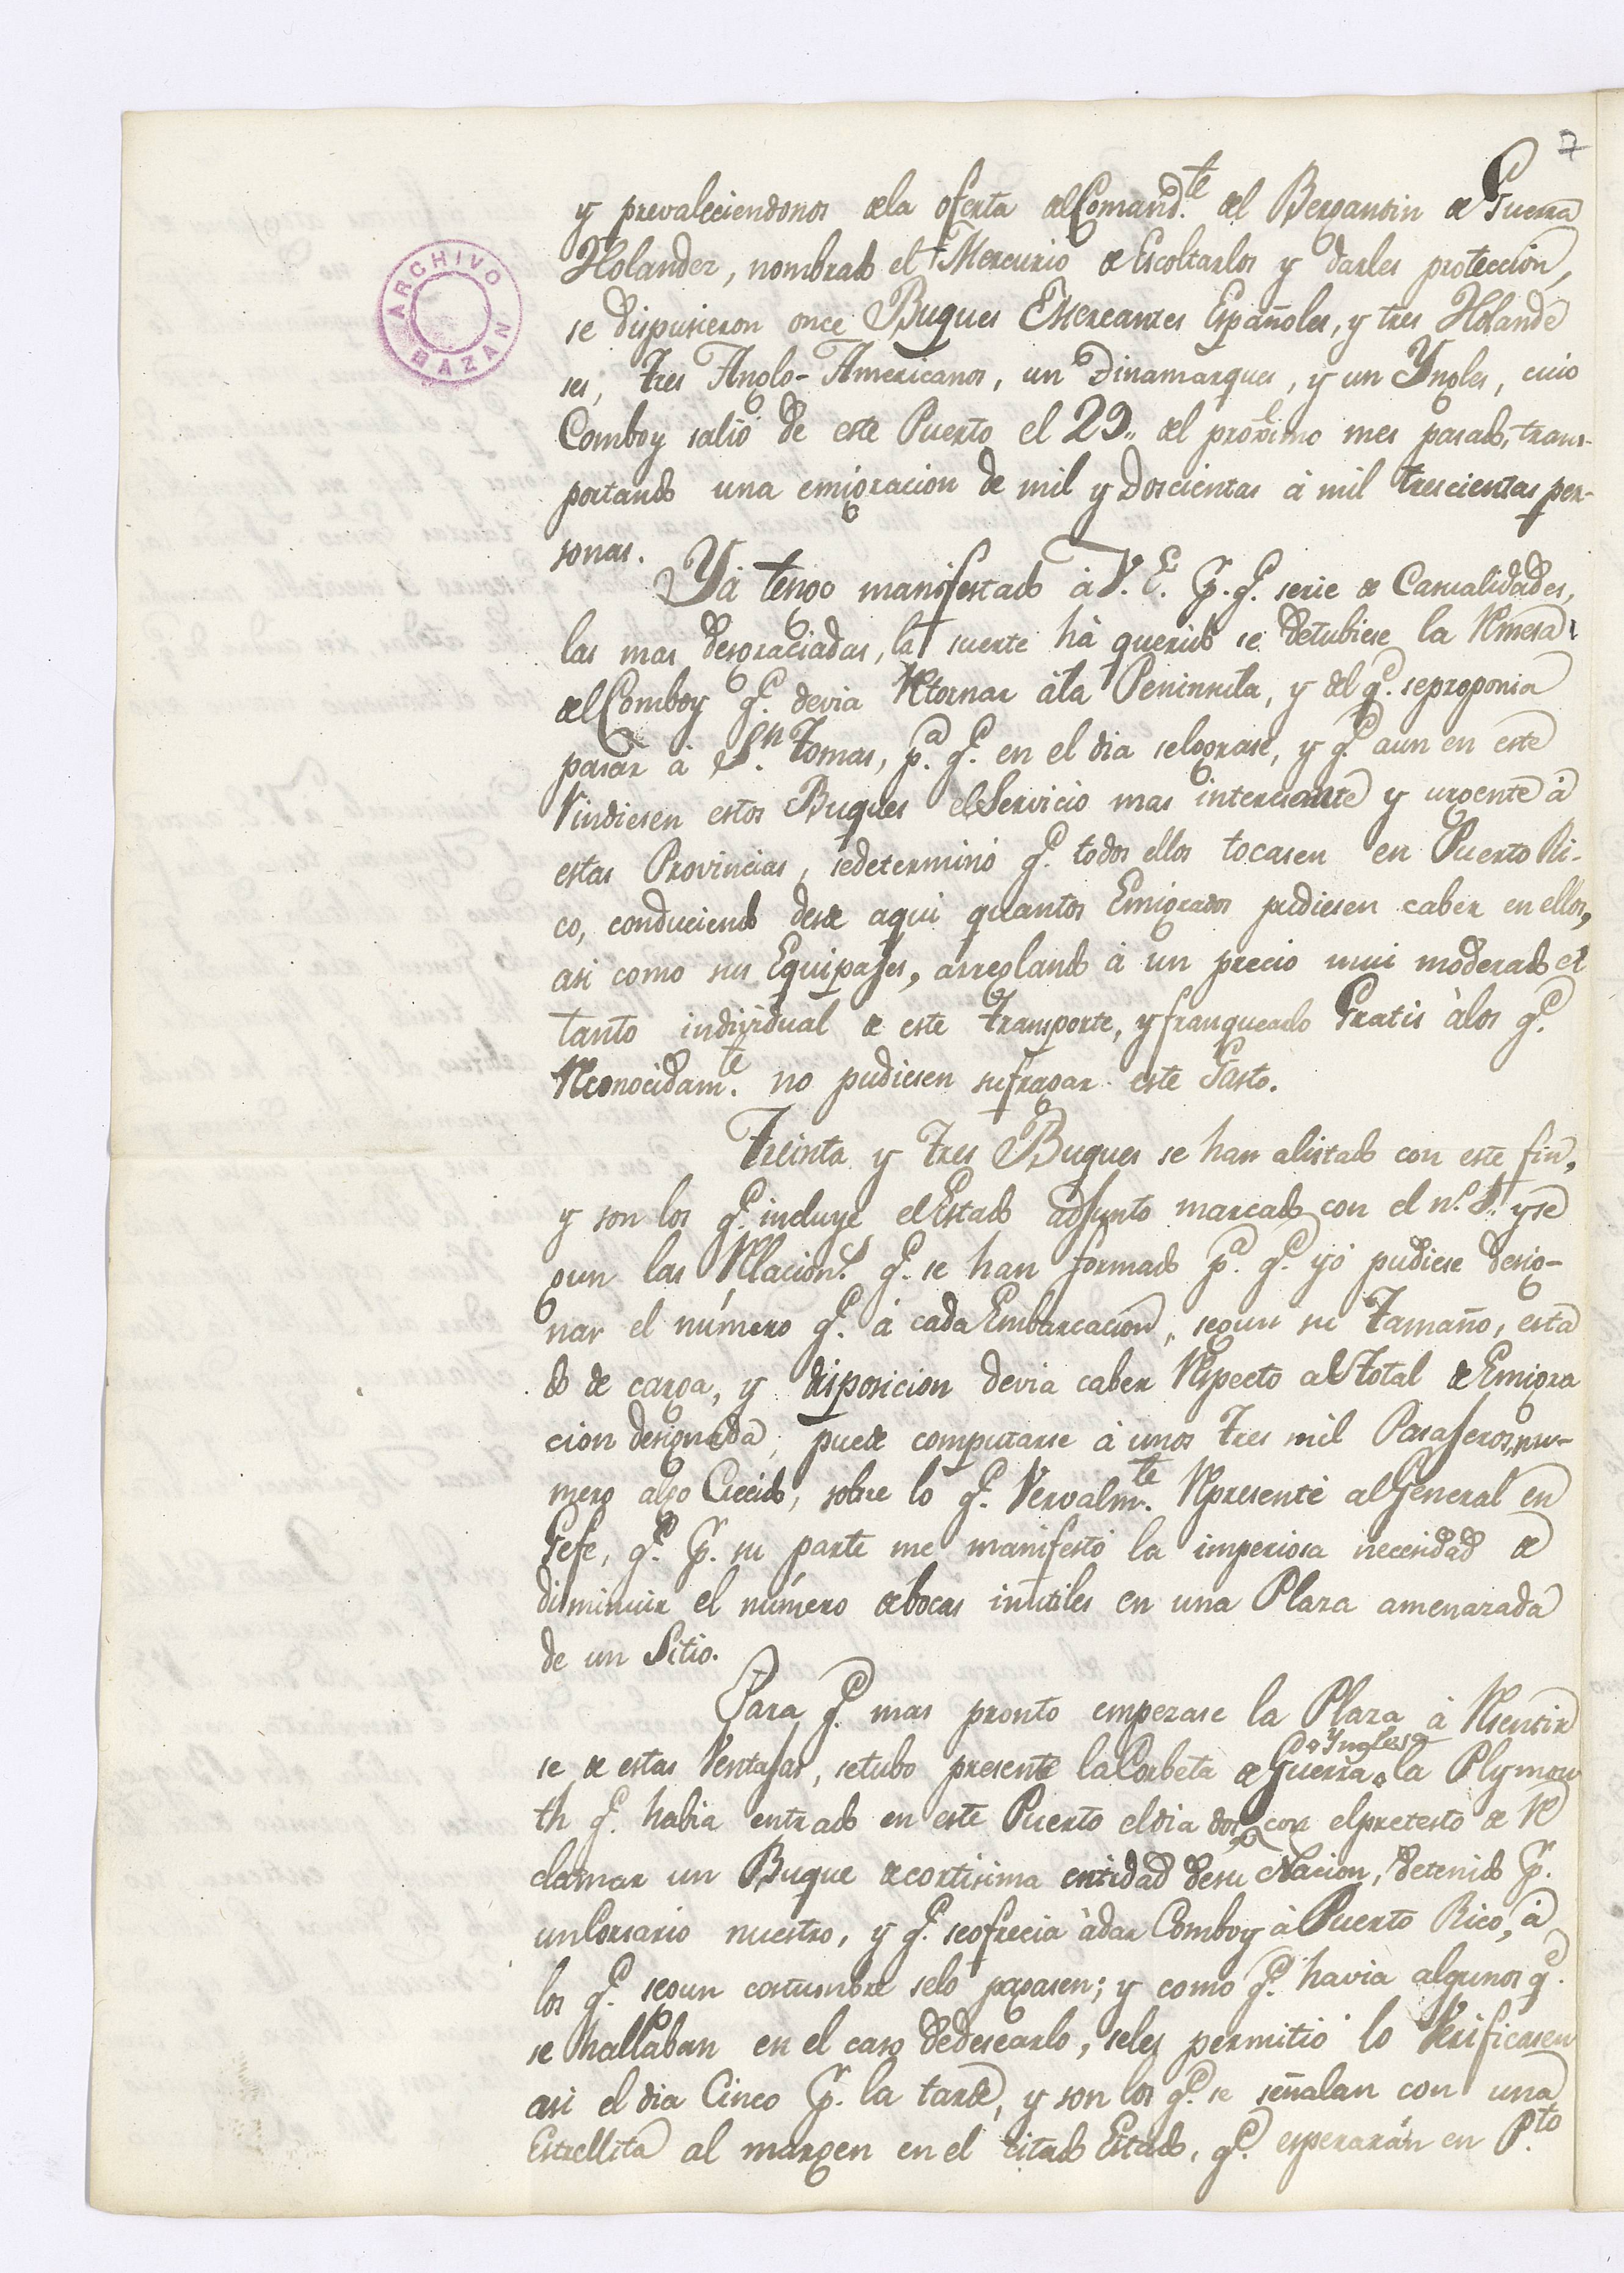 7
ARCHIVO
BAZAN
y prevaleciendonos dela oferta del Comand.te del Bergantin de Guerra
Holandez, nombrado el Mercurio de Escoltarlos y darles protección,
se dispusieron once Buques Mercantes Españoles, y tres Holande
ses, tres Anglo-Americanos, un Dinamarques, y un Yngles, cuio
Comboy salió de este Puerto el 29,, del proximo mes pasado, trans-
portando una emigracion de mil y doscientas á mil trescientas per-
sonas.
Yá tengo manifestado á V. E. p.r q.e serie de Casualidades,
las mas desgraciadas, la suerte há querido se detubiese la Remesa
del Comboy q.e devia Retornar ála Peninsula, y del q.e seproponia
pasar á S.n Tomas, p.a q.e en el dia selograse, y q.e aun en este
Rindiesen estos Buques el Servicio mas interesante y urgente á
estas Provincias, sedeterminó q.e todos ellos tocasen en Puerto Ri-
co, conduciendo desde aqui quantos Emigrados pudiesen caber en ellos,
asi como sus Equipajes, arreglando á un precio mui moderado el
tanto individual de este transporte, y franqueado Gratis álos q.e
Reconocidam.te no pudiesen sufragar este Gasto.
Treinta y tres Buques se han alistado con este fin,
y son los q.e incluye el Estado adjunto marcado con el n.o 1.. y se
gun las Relacion.s q.e se han formado p.a q.e yó pudiese desig-
nar el número q.e á cada Embarcacion, segun su Tamaño, esta
do de carga, y disposicion devia caber Respecto al total de Emigra
cion designada, puede computarse á unos tres mil Pasajeros, nu-
mero algo Crecido, sobre lo q.e Vervalm.te Represente al General en
Gefe, q.e p.r su parte me manifestó la imperiosa necesidad de
disminuir el número de bocas inutiles en una Plaza amenazada
de un Sitio.
Para q.e mas pronto empezase la Plaza á Resentir
se de estas Ventajas, setubo presente la Corbeta de Guerra
Ynglesa
la Plymou
th q.e habia entrado en este Puerto el dia dos con el pretesto de Re
clamar un Buque de cortisima entidad de su Nacion, detenido p.r
un Corsario nuestro, y q.e seofrecia ádar Comboy á Puerto Rico, á
los q.e segun costumbre selo pagasen; y como q.e havia algunos q.e
se hallaban en el caso dedesearlo, seles permitió lo Verificasen
asi el dia Cinco p.r la tarde, y son los q.e se señalan con una
Estrellita al margen en el citado Estado, q.e esperarán en P.to